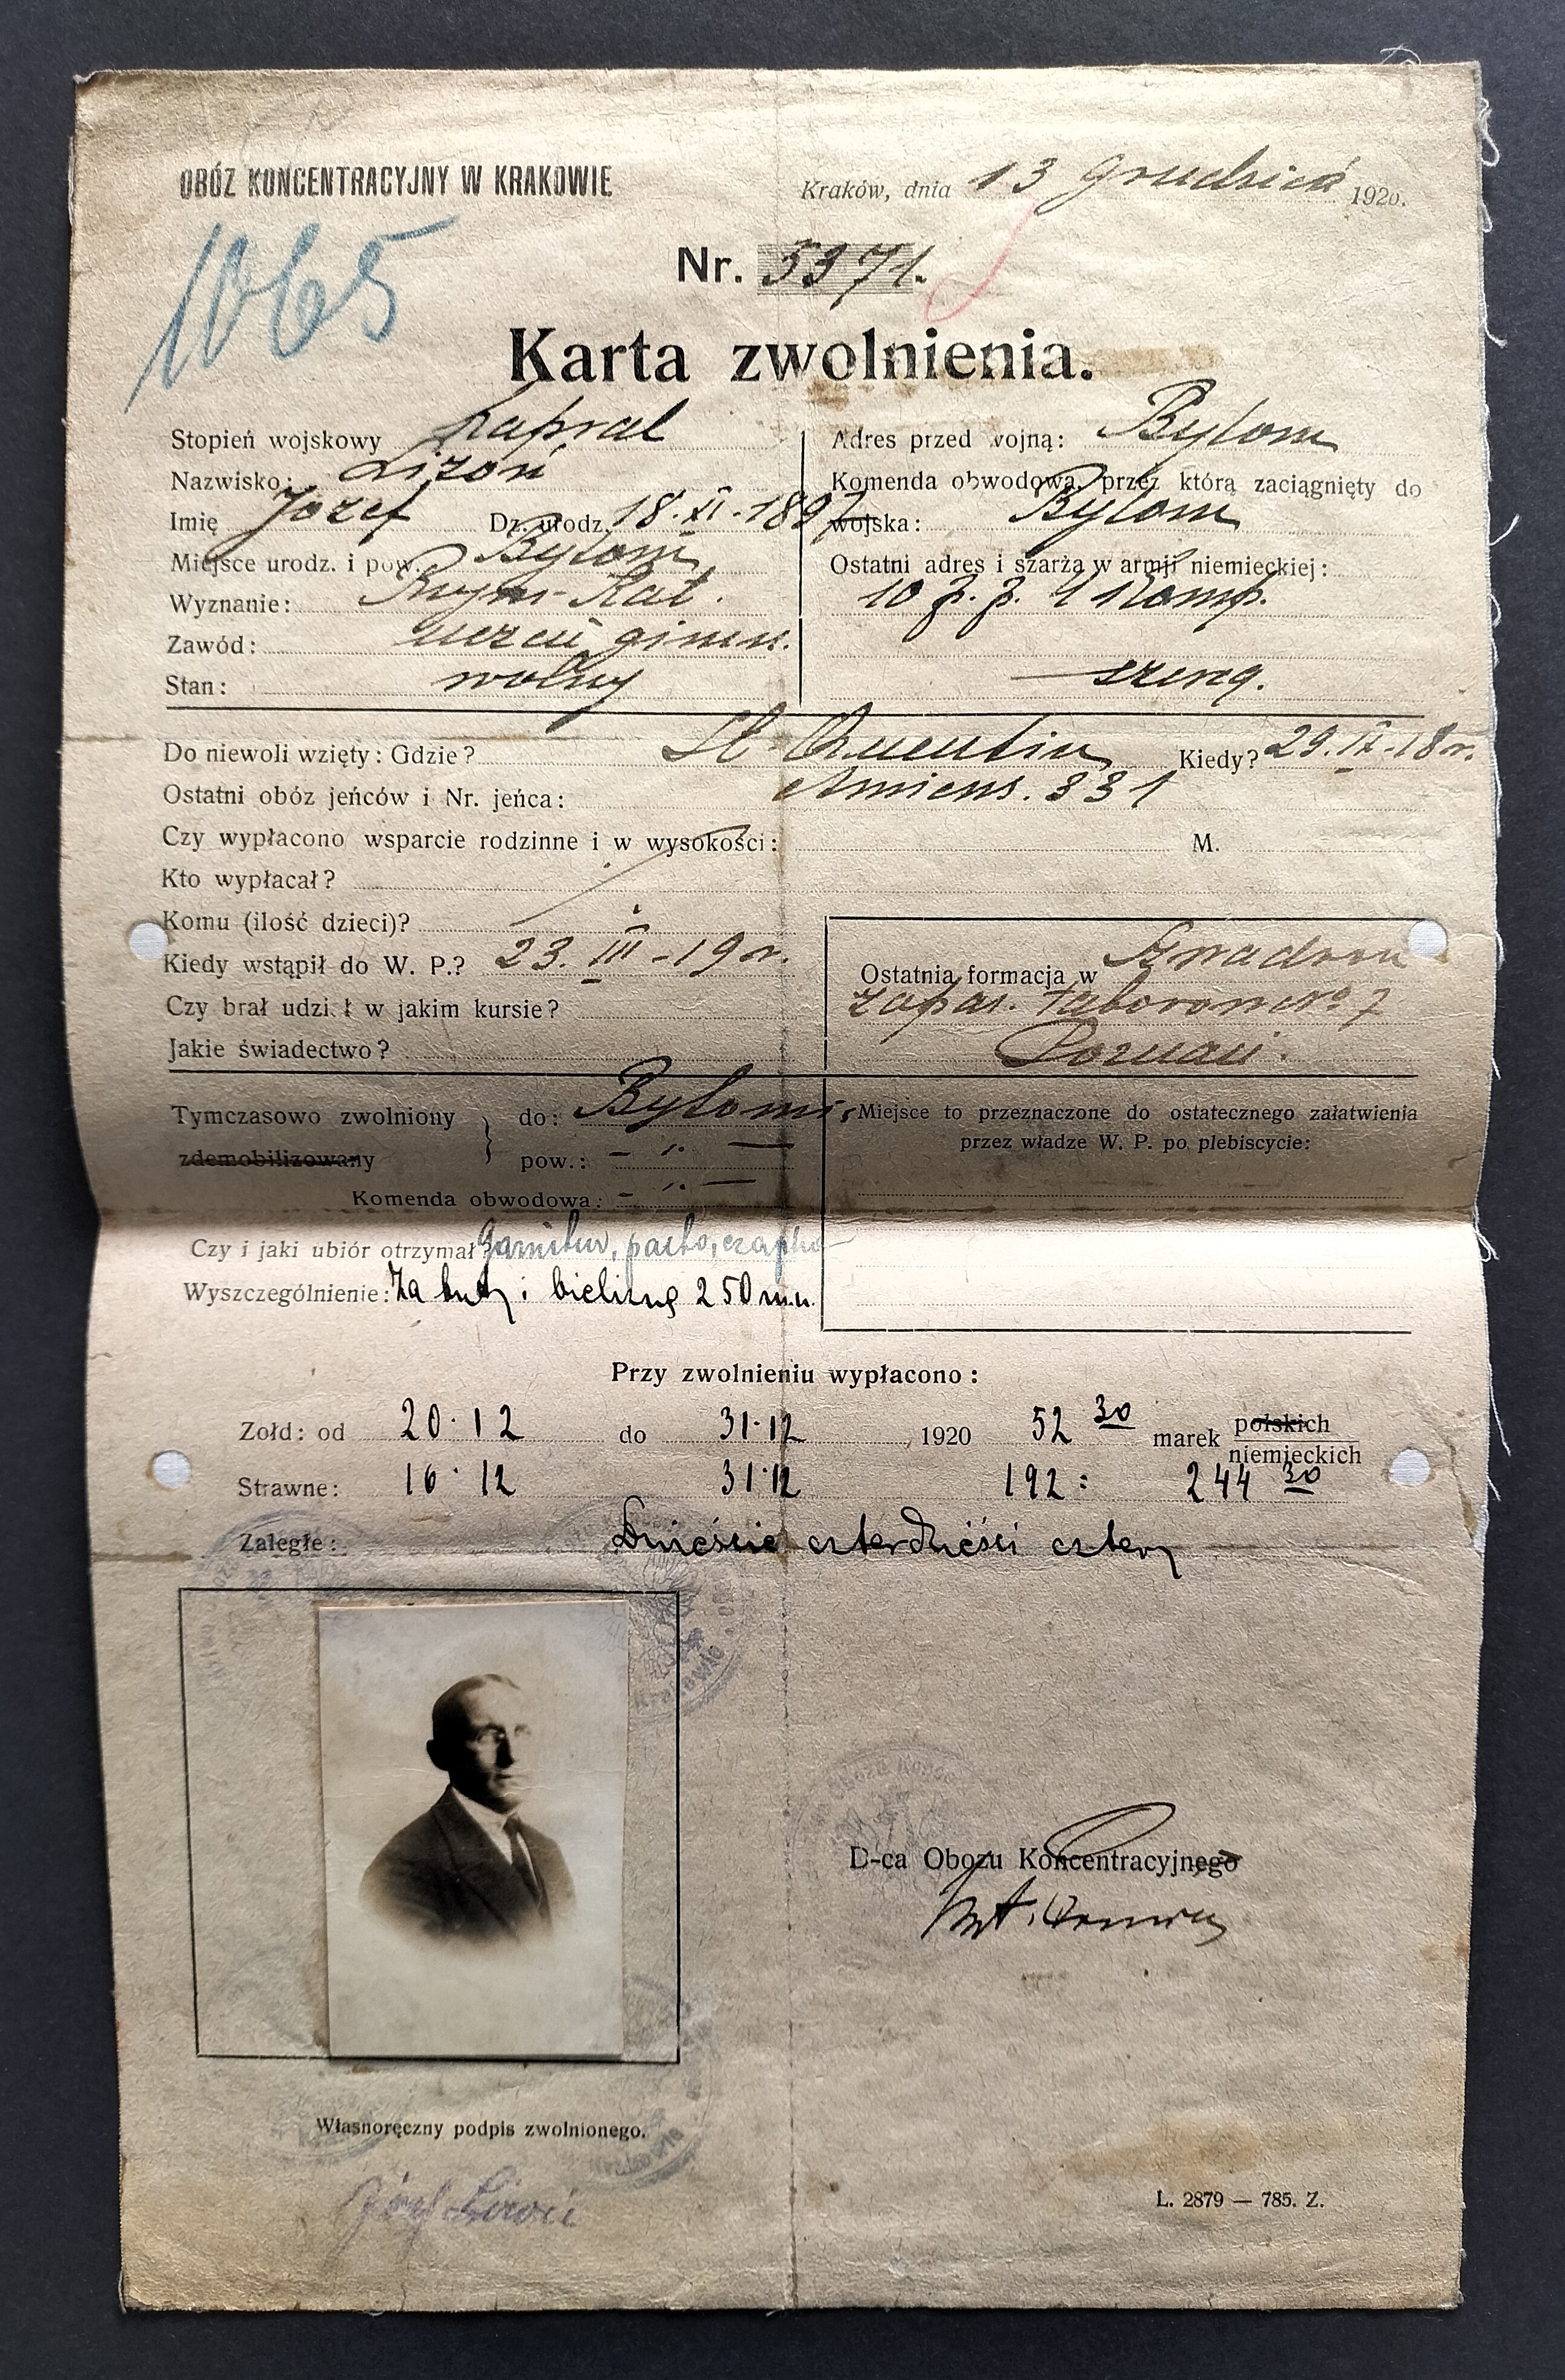 OBÓZ KONCENTRACYJNY W KRAKOWIE
Kraków, dnia 13 Grudnia 1920.
1065
Nr. 5371.
Karta zwolnienia.
Stopień wojskowy kapral
Nazwisko: Lizoń
Imię Józef Dz. urodz. 18.XI.1897
Miejsce urodz. i pow. Bytom
Wyznanie: Rzym-Kat.
Zawód: uczeń gimn.
Stan: wolny
Adres przed wojną: Bytom
Komenda obwodowa, przez którą zaciągnięty do
wojska: Bytom
Ostatni adres i szarża w armji niemieckiej:
10 p. p. 4 Komp.
szereg.
Do niewoli wzięty: Gdzie? St. Quentin Kiedy? 29.IX-18 r.
Ostatni obóz jeńców i Nr. jeńca: Amiens. 331
Czy wypłacono wsparcie rodzinne i w wysokości: M.
Kto wypłacał?
Komu (ilość dzieci)?
Kiedy wstąpił do W. P.? 23. III -19 r.
Czy brał udział w jakim kursie?
Jakie świadectwo?
Ostatnia formacja w Szwadron
zapas. taborów No 7
Poznań.
Tymczasowo zwolniony } do: Bytomia
zdemobilizowany pow.: - " -
Komenda obwodowa: - " -
Miejsce to przeznaczone do ostatecznego załatwienia
przez władze W. P. po plebiscycie:
Czy i jaki ubiór otrzymał? Garnitur, palto, czapka
Wyszczególnienie: Za buty i bieliznę 250 m.n.
Przy zwolnieniu wypłacono:
Żołd: od 20.12 do 31.12 1920 52 30 marek polskich
niemieckich
Strawne: 16.12 31.12 192: 244 30
Zaległe: Dwieście czterdzieści cztery
D-ca Obozu Koncentracyjnego
Własnoręczny podpis zwolnionego.
Józef Lizoń
L. 2879 — 785. Z.